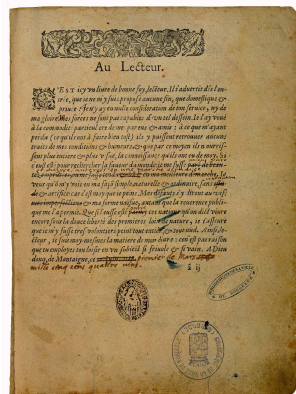 Au Lecteur.
C'EST icy vn liure de bonne foy, lecteur. Il t'aduertit dés l'en-
trée, que ie ne m'y suis proposé aucune fin, que domestique &
priuée: ie n'y ay eu nulle consideration de ton seruice, ny de
ma gloire: mes forces ne sont pas capables d'vn tel dessein. Ie l'ay voué
à la commodité particuliere de mes parens & amis: à ce que m'ayant
perdu (ce qu'ils ont à faire bien tost) ils y puissent retrouuer aucuns
traits de mes conditions & humeurs, & que par ce moyen ils nourris-
sent plus entiere & plus vifue, la connoissance qu'ils ont eu de moy. Si
c'eust esté pour rechercher la faueur du monde, ie me fusse
veux qu'on m'y voie en ma façon simple, naturelle & ordinaire, sans
& artifice: car c'est moy que ie peins. Mes defauts s'y liront au vif
& ma forme naïfue, autant que la reuerence publi-
que me l'a permis. Que si i'eusse esté parmy ces nations qu'on dit viure
encore sous la douce liberté des premieres loix de nature, ie t'asseure
que ie m'y fusse tres-volontiers peint tout entier, & tout nud. Ainsi, le-
cteur, ie suis moy-mesmes la matiere de mon liure: ce n'est pas raison
que tu employes ton loisir en vn subiect si friuole & si vain. A Dieu
donq, de Montaigne, ce premier de Mars
mille cinq cens quatre vins.
ã ij